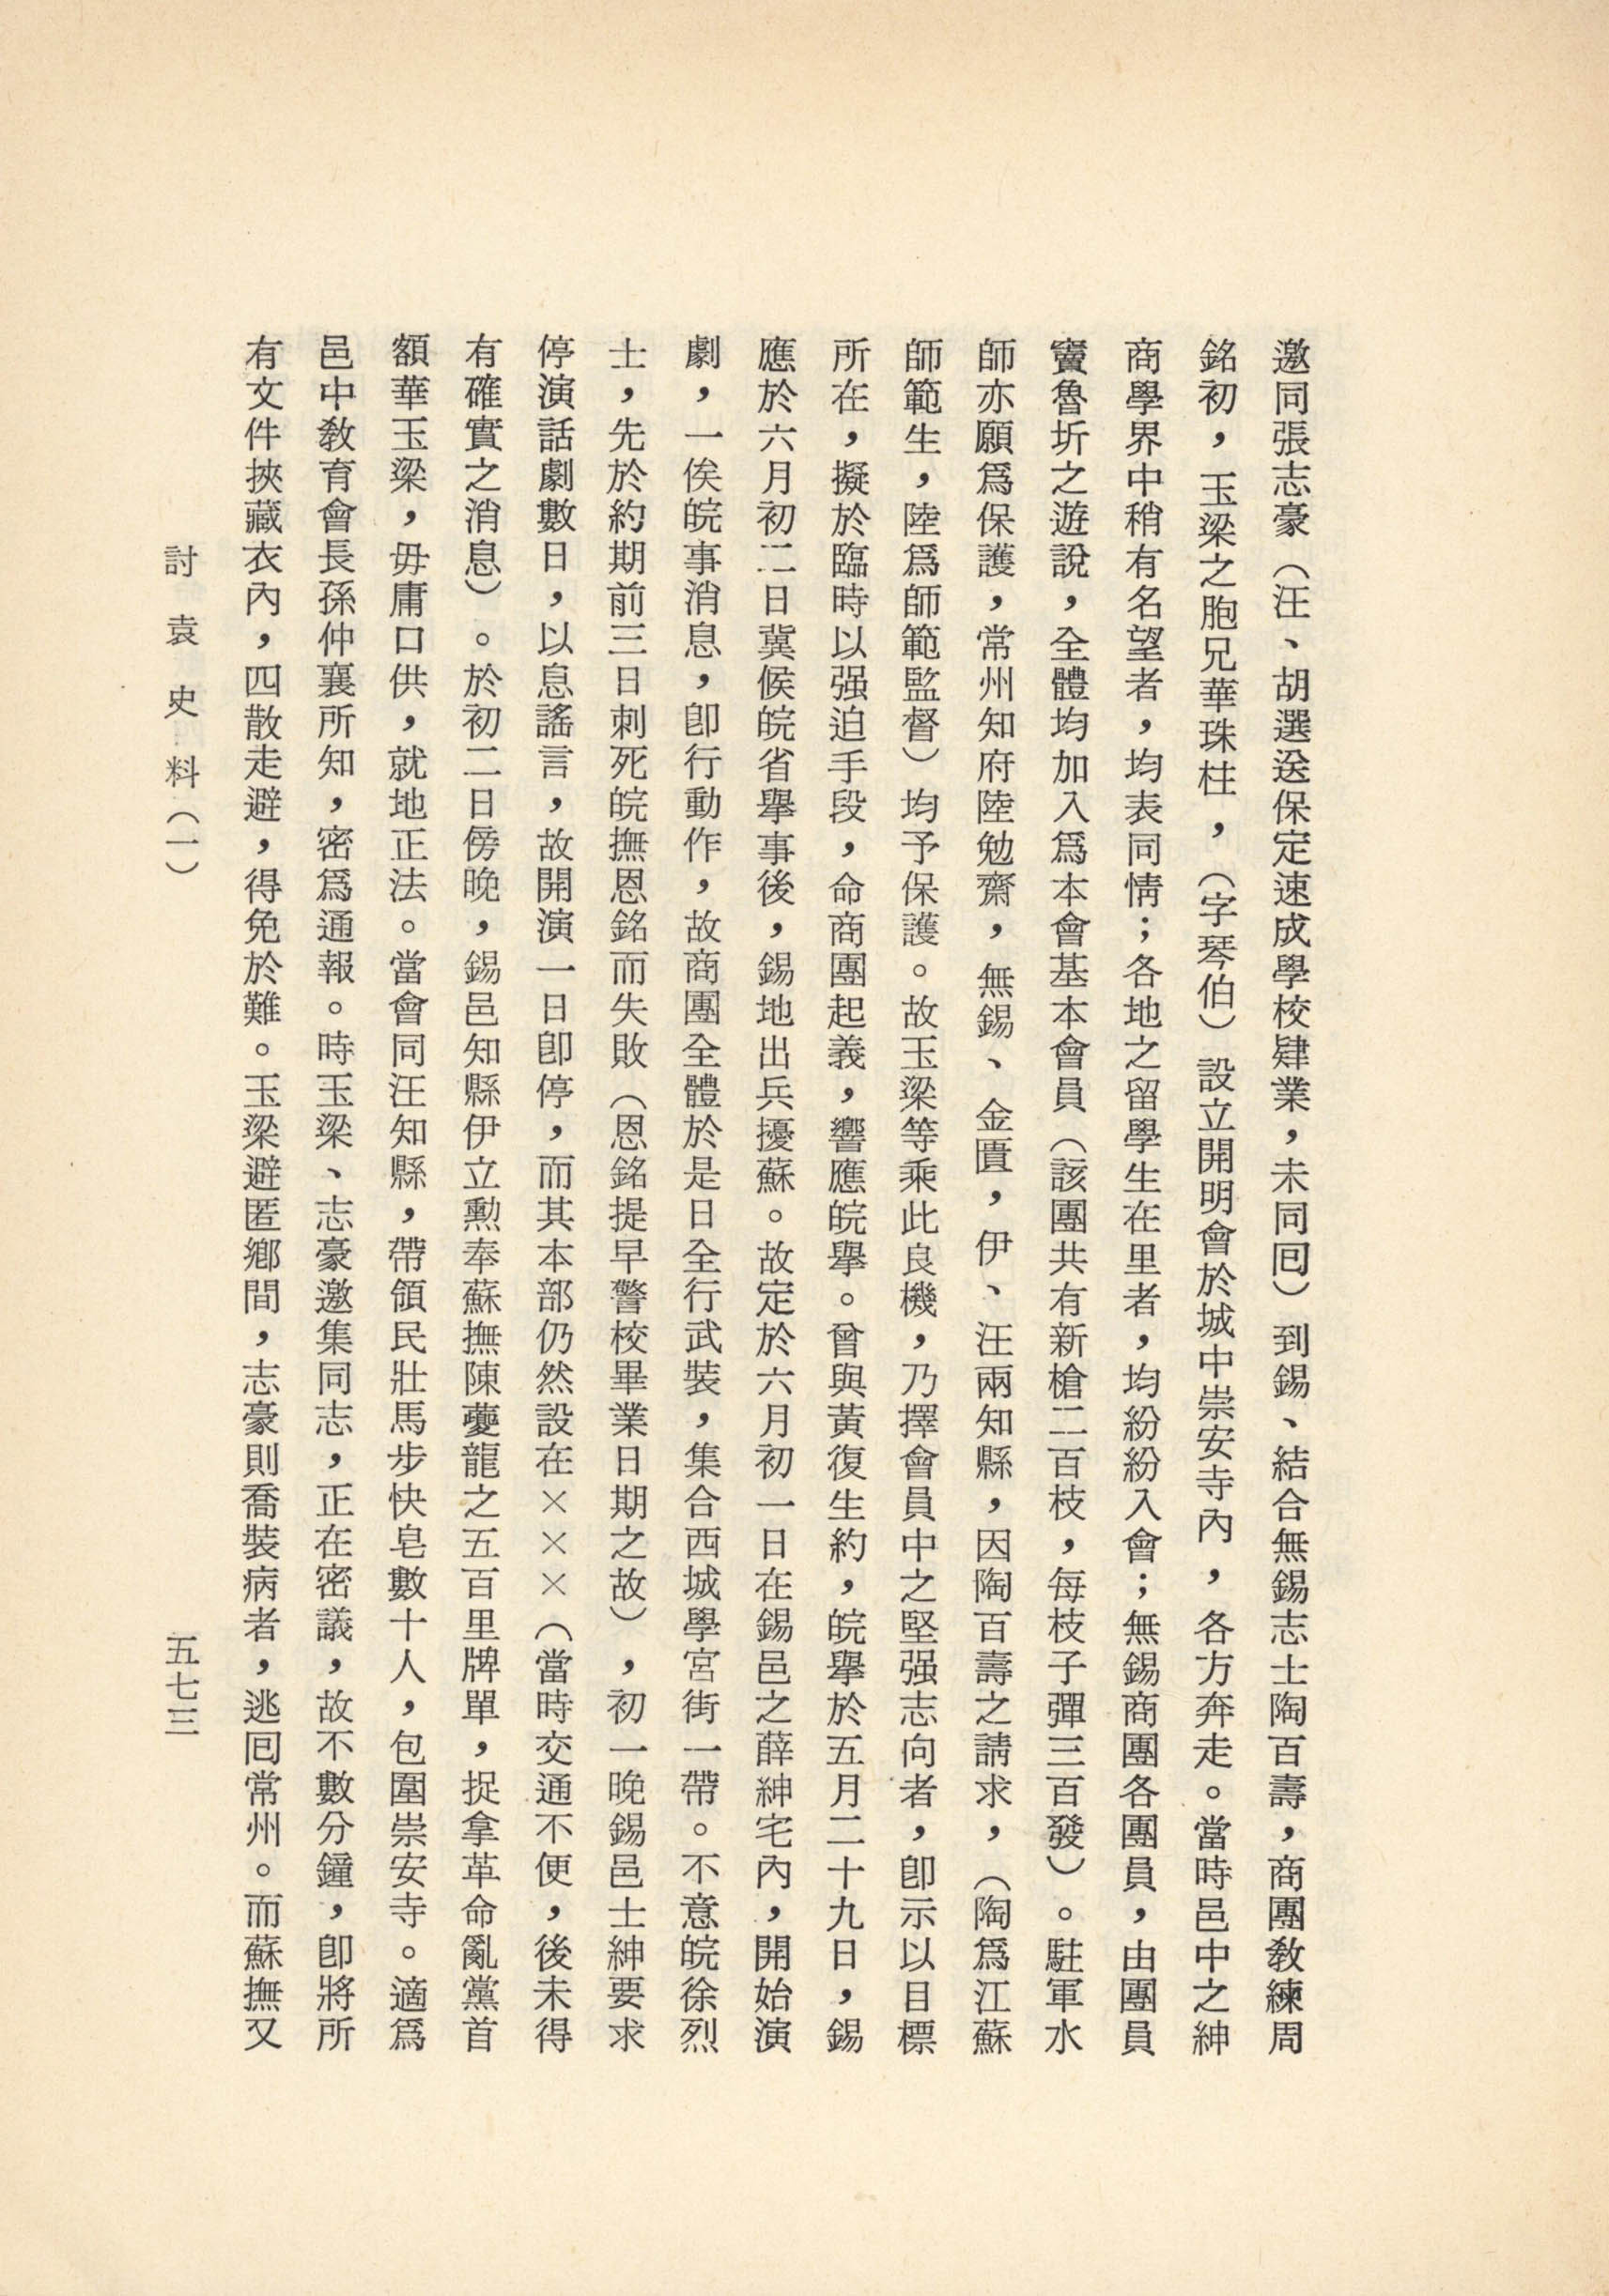 邀同張志豪（汪、胡選送保定速成學校肄業，未同囘）到錫、結合無錫志士陶百壽，商團教練周
銘初，玉梁之胞兄華珠柱，（字琴伯）設立開明會於城中崇安寺內，各方奔走。當時邑中之紳
商學界中稍有名望者，均表同情；各地之留學生在里者，均紛紛入會；無錫商團各團員，由團員
竇魯圻之遊說，全體均加入爲本會基本會員（該團共有新槍二百枝，每枝子彈三百發）。駐軍水
師亦願爲保護，常州知府陸勉齋，無錫、金匱，伊、汪兩知縣，因陶百壽之請求，（陶爲江蘇
師範生，陸爲師範監督）均予保護。故玉梁等乘此良機，乃擇會員中之堅强志向者，卽示以目標
所在，擬於臨時以强迫手段，命商團起義，響應皖舉。曾與黃復生約，皖舉於五月二十九日，錫
應於六月初二日冀候皖省舉事後，錫地出兵擾蘇。故定於六月初一日在錫邑之薛紳宅內，開始演
劇，一俟皖事消息，卽行動作，故商團全體於是日全行武裝，集合西城學宮街一帶。不意皖徐烈
士，先於約期前三日刺死皖撫恩銘而失敗（恩銘提早警校畢業日期之故），初一晚錫邑士紳要求
停演話劇數日，以息謠言，故開演一日卽停，而其本部仍然設在×××（當時交通不便，後未得
有確實之消息）。於初二日傍晚，錫邑知縣伊立勳奉蘇撫陳夔龍之五百里牌單，捉拿革命亂黨首
額華玉梁，毋庸口供，就地正法。當會同汪知縣，帶領民壯馬步快皂數十人，包圍崇安寺。適爲
邑中教育會長孫仲襄所知，密爲通報。時玉梁、志豪邀集同志，正在密議，故不數分鐘，卽將所
有文件挾藏衣內，四散走避，得免於難。玉梁避匿鄉間，志豪則喬裝病者，逃囘常州。而蘇撫又
討袁史料（一）
五七三